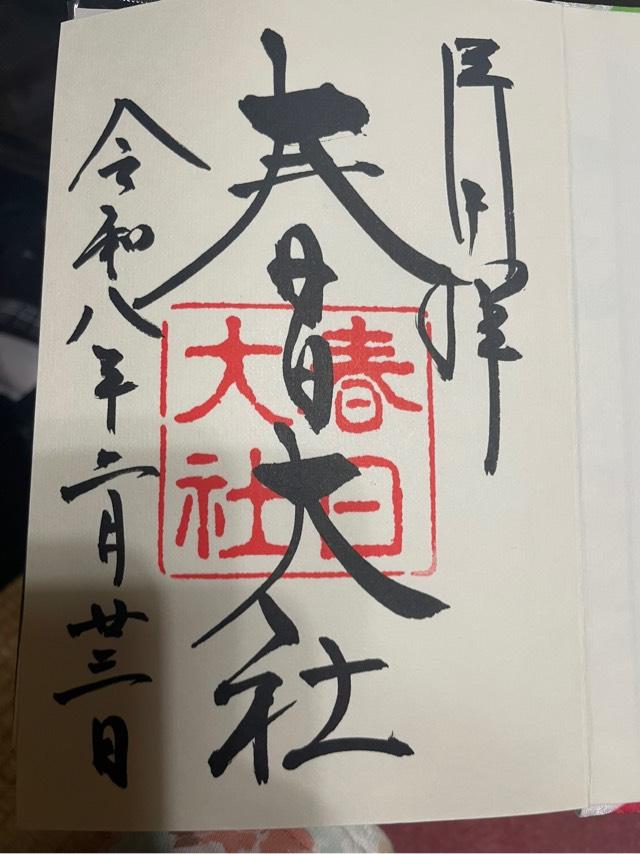 奉拝
春日大社
春日
大社
令和八年二月廿三日